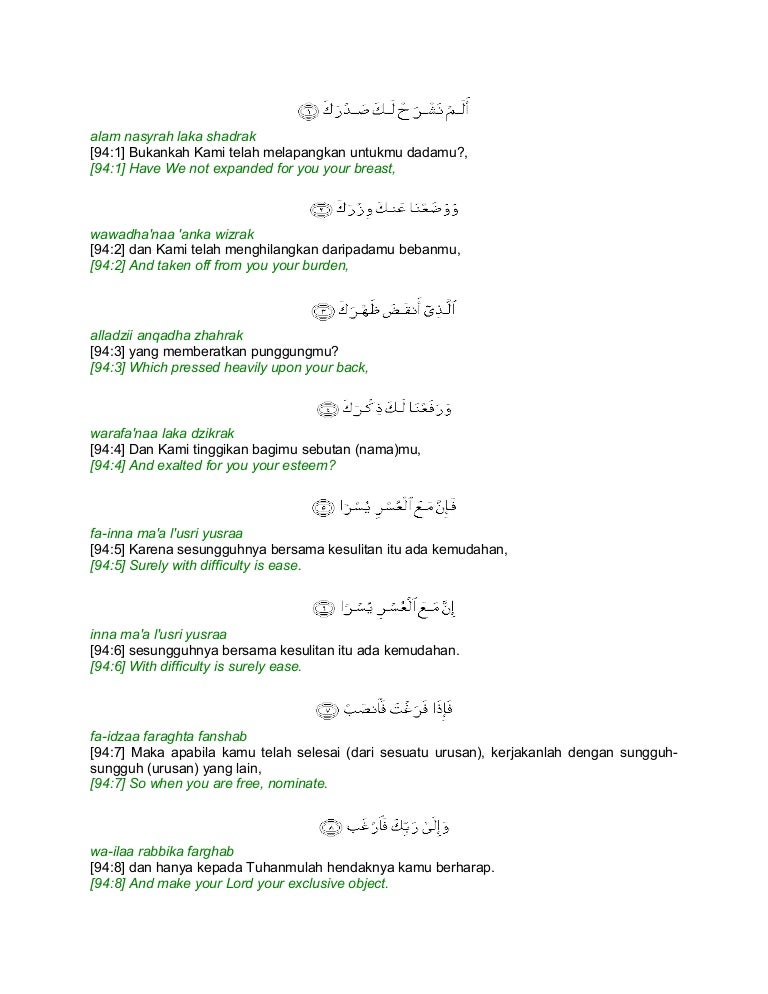 أَلَمْ نَشْرَحْ لَكَ صَدْرَكَ ﴿١﴾
alam nasyrah laka shadrak
[94:1] Bukankah Kami telah melapangkan untukmu dadamu?,
[94:1] Have We not expanded for you your breast,
وَوَضَعْنَا عَنكَ وِزْرَكَ ﴿٢﴾
wawadha'naa 'anka wizrak
[94:2] dan Kami telah menghilangkan daripadamu bebanmu,
[94:2] And taken off from you your burden,
ٱلَّذِىٓ أَنقَضَ ظَهْرَكَ ﴿٣﴾
alladzii anqadha zhahrak
[94:3] yang memberatkan punggungmu?
[94:3] Which pressed heavily upon your back,
وَرَفَعْنَا لَكَ ذِكْرَكَ ﴿٤﴾
warafa'naa laka dzikrak
[94:4] Dan Kami tinggikan bagimu sebutan (nama)mu,
[94:4] And exalted for you your esteem?
فَإِنَّ مَعَ ٱلْعُسْرِ يُسْرًا ﴿٥﴾
fa-inna ma'a l'usri yusraa
[94:5] Karena sesungguhnya bersama kesulitan itu ada kemudahan,
[94:5] Surely with difficulty is ease.
إِنَّ مَعَ ٱلْعُسْرِ يُسْرًا ﴿٦﴾
inna ma'a l'usri yusraa
[94:6] sesungguhnya bersama kesulitan itu ada kemudahan.
[94:6] With difficulty is surely ease.
فَإِذَا فَرَغْتَ فَٱنصَبْ ﴿٧﴾
fa-idzaa faraghta fanshab
[94:7] Maka apabila kamu telah selesai (dari sesuatu urusan), kerjakanlah dengan sungguh-
sungguh (urusan) yang lain,
[94:7] So when you are free, nominate.
وَإِلَىٰ رَبِّكَ فَٱرْغَب ﴿٨﴾
wa-ilaa rabbika farghab
[94:8] dan hanya kepada Tuhanmulah hendaknya kamu berharap.
[94:8] And make your Lord your exclusive object.